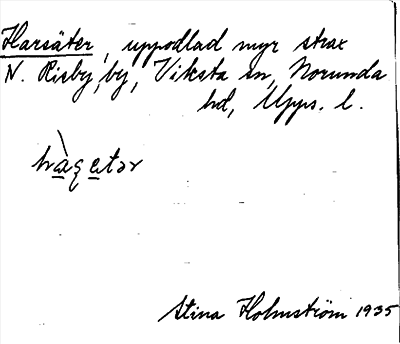 Harsäter, uppodlad myr strax
N. Risby, by, Viksta sn, Norunda
hd, Upps. l.
hàʂetər
Stina Holmström 1935